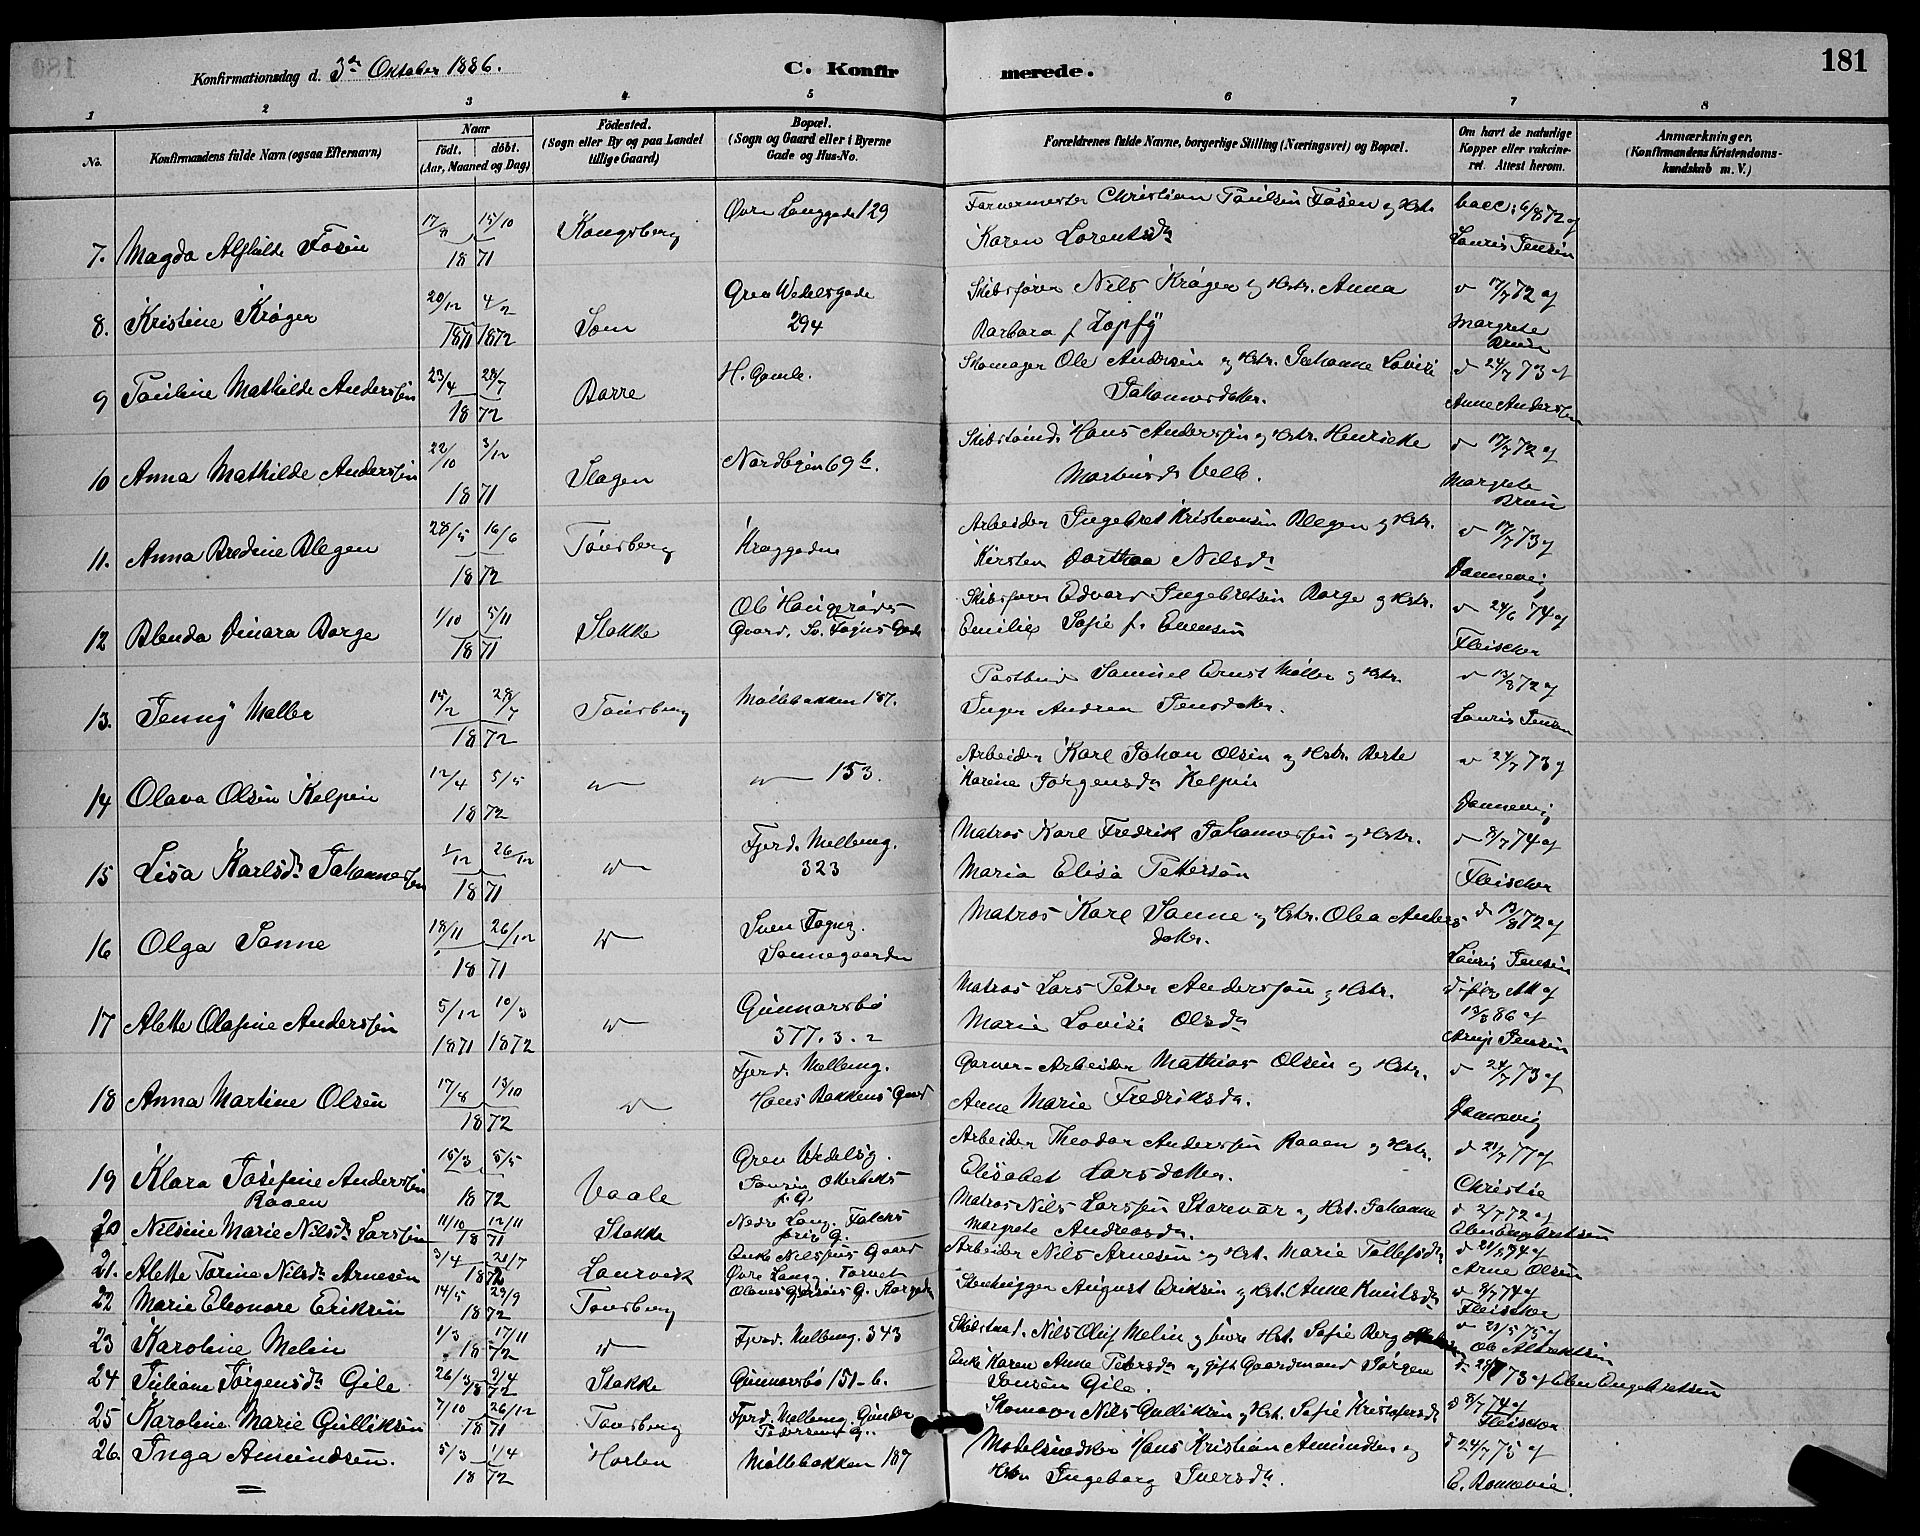 181
Konfirmationsdag d. 3die Oktober 1886.
C. Konfirmerede.
1 2 3 4 5 6 7 8
No.
Konfirmandens fulde Navn (ogsaa Efternavn)
Naar
født. døbt.
(Aar, Maaned og Dag)
Fødested.
(Sogn eller By og paa Landet
tillige Gaard)
Bopæl.
(Sogn og Gaard eller i Byerne
Gade og Hus-No.
Forældrenes fulde Navne, borgerlige Stilling (Næringsvei) og Bopæl.
Om havt de naturlige
Kopper eller vakcine-
ret. Attest herom.
Anmærkninger.
(Konfirmandens Kristendoms-
kundskab m. V.)
7. Magda Alfhilde Fosen 15/10 1871 Kongsberg Øvre Langgade 129 Farvermester Christian Paulsen Fosen og Hstr. Karen Lorentsdr vacc. 6/8 72 af Lauris Jensen
8. Kristine Krøger 20/12 1871 4/2 1872 Sem Grev Wedelsgade 294 Skibsfører Nils Krøger og Hstr. Anna Barbara f. Zopfy v 17/7 72 af Margrete Bruun
9 Pauline Mathilde Anderssen 23/4 28/7 1872 Borre H. Gamle. Skomager Ole Andersen og Hstr. Johanne Lovise Johannesdatter. v 24/7 73 af Anne Anderssen
10 Anna Mathilde Anderssen 22/10 3/12 1871 Slagen Nordbyen 69 b. Skibstømd. Hans Anderssen og Hstr. Henrikke v 17/7 72 af Margrete Bruun
11. Anna Bredine Blegen 28/5 16/6 1872 Tønsberg Kraggaden Arbeider Ingebret Kristiansen Blegen og Hstr. Kirsten Dorthea Nilsdr v 17/7 73 af Dannevig
12 Blenda Dinara Borge 1/10 5/11 1871 Stokke Ob Haugsrøds Gaard. Sv. Foyns Gade Skibsfører Edvard Ingebretsen Borge og Hstr. Emilie Sofie f. Evensen v 24/6 74 af Fleischer
13. Jenny Møller 15/2 28/7 1872 Tønsberg Møllebakken 187. Postbud Samuel Ernst Møller og Hstr. Inger Andrea Jensdatter. v 13/8 72 af Lauris Jensen
14 Olava Olsen Kelpin 12/4 5/5 1872 " " 153. Arbeider Karl Johan Olsen og Hstr. Berte Karine Jørgensdr Kelpin v 24/7 73 af Dannevig
15 Lisa Karlsdr Johannessen 1/12 26/12 1871 " Fjerd. Mellemg. 323 Matros Karl Fredrik Johannessen og Hstr. Maria Elisa Pettersen v 8/7 74 af Fleischer
16 Olga Sanne 18/11 26/12 1871 " Sven Foyng. Sannegaarden Matros Karl Sanne og Hstr. Olea Andersdatter. v 13/8 72 af Lauris Jensen
17 Alette Olafine Anderssen 5/12 1871 10/3 1872 " Gunnarsbø 377. 3. 2 Matros Lars Peter Anderssen og Hstr. Marie Lovise Olsdr 13/8 86 af Jensen
18 Anna Martine Olsen 17/8 13/10 1872 " Fjerd. Mellemg. Hans Bakkens Gaard Garver-Arbeider Mathias Olsen og Hstr. Anne Marie Fredriksdr. v 24/7 73 af Dannevig
19 Klara Josefine Anderssen Raaen 15/3 5/5 1872 Vaale Grev Wedelsg. Jensen Otterbeks G. Arbeider Theodor Anderssen Raaen og Hstr. Elisabet Larsdatter. v 21/7 77 af Christie
20 Nilsine Marie Nilsdr Larssen 11/10 12/11 1871 Stokke Nedre Lang. Matros Nils Larssen Storevar og Hst. Johanne Margrete Andreasdr. v 2/7 72 af Elen Engebretsen
21. Alette Torine Nilsdr Arnesen 3/4 21/7 1872 Laurvik Enke Nilsens Gaard Øvre Lang. Torvet Arbeider Nils Arnesen og Hst. Marie Tollefsdr Arne Olsen
22 Marie Eleonore Eriksen 14/5 29/9 1872 Tønsberg Stenhugger August Eriksen og Hst. Anne Knutsdr v 8/7 74 af Fleischer
23 Karoline Melin 1/3 17/11 1872 " Fjerd. Mellemg. 343 Skibstømd. Nils Oluf Melin og Hst. Sofie Berg v 21/5 75 af
24 Juliane Jørgensdr Gile 26/3 2/4 1872 Stokke Gunnarsbø 151-b. Enke Karen Anne Petersdr og gift Gaardmand Jørgen Jensen Gile. 73 af Elen Engebretsen
25 Karoline Marie Gulliksen 7/10 26/12 1871 Tønsberg Fjerd. Mellemg. Gunder Pedersens G. Skomager Nils Gulliksen og Hst. Sofie Kristofersdr v 8/7 74 af Fleischer
26. Inga Amundsen. 5/3 1/4 1872 Horten Møllebakken 187 Hans Kristian Amundsen og Hstr Ingeborg Iversdr. v 24/7 75 af